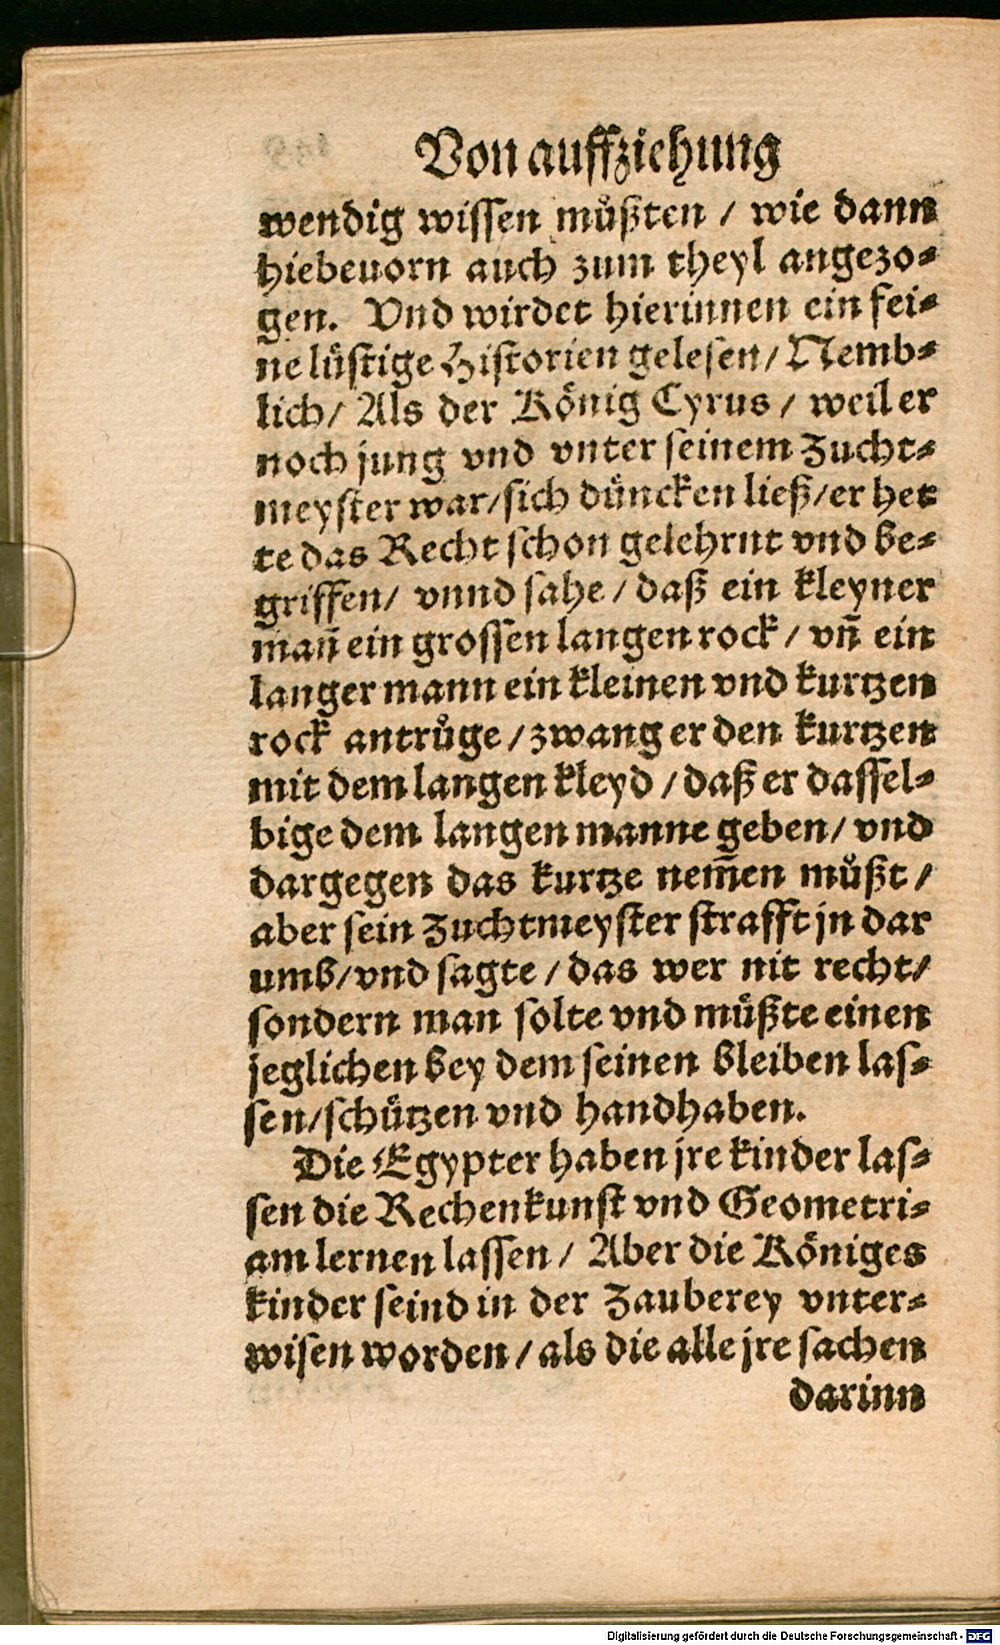 Von auffziehung
wendig wissen müßten / wie dann
hiebeuorn auch zum theyl angezo⸗
gen. Vnd wirdet hierinnen ein fei⸗
ne lüstige Historien gelesen / Nemb⸗
lich / Als der König Cyrus / weil er
noch jung vnd vnter seinem Zucht⸗
meyster war / sich düncken ließ / er het
te das Recht schon gelehrnt vnd be⸗
griffen / vnnd sahe / daß ein kleyner
man̄ ein grossen langen rock / vn̄ ein
langer mann ein kleinen vnd kurtzen
rock antrůge / zwang er den kurtzen
mit dem langen kleyd / daß er dassel⸗
bige dem langen manne geben / vnd
dargegen das kurtze nem̄en můßt /
aber sein Zuchtmeyster strafft jn dar
umb / vnd sagte / das wer nit recht /
sondern man solte vnd müßte einen
jeglichen bey dem seinen bleiben las⸗
sen / schützen vnd handhaben.
Die Egypter haben jre kinder las⸗
sen die Rechenkunst vnd Geometri⸗
am lernen lassen / Aber die Königes
kinder seind in der Zauberey vnter⸗
wisen worden / als die alle jre sachen
darinn
Digitalisierung gefördert durch die Deutsche Forschungsgemeinschaft - DFG